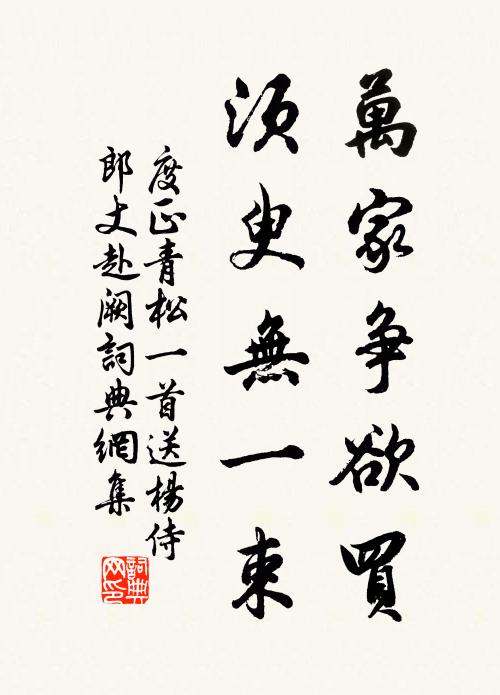 萬家爭欲買
須臾無一束
度正青松一首送楊侍
郎丈赴闕詞典網集
詞典网印